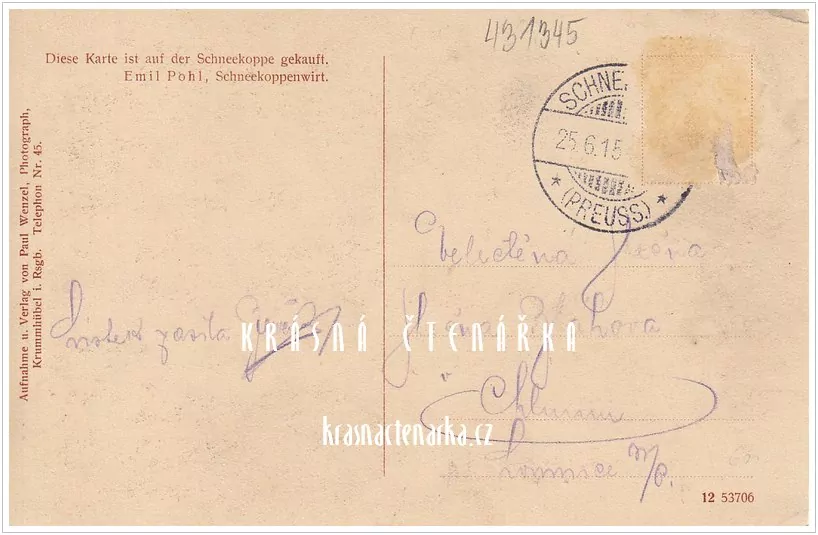 431345
Diese Karte ist auf der Schneekoppe gekauft.
Emil Pohl, Schneekoppenwirt.
Aufnahme u. Verlag von Paul Wenzel, Photograph,
Krummhübel i. Rsgb. Telephon Nr. 45.
SCHNE
25.6.15
(PREUSS.)
Velectěna
zasílá
KRÁSNÁ ČTENÁŘKA
krasnactenarka.cz
Lomnice n/P.
12 53706